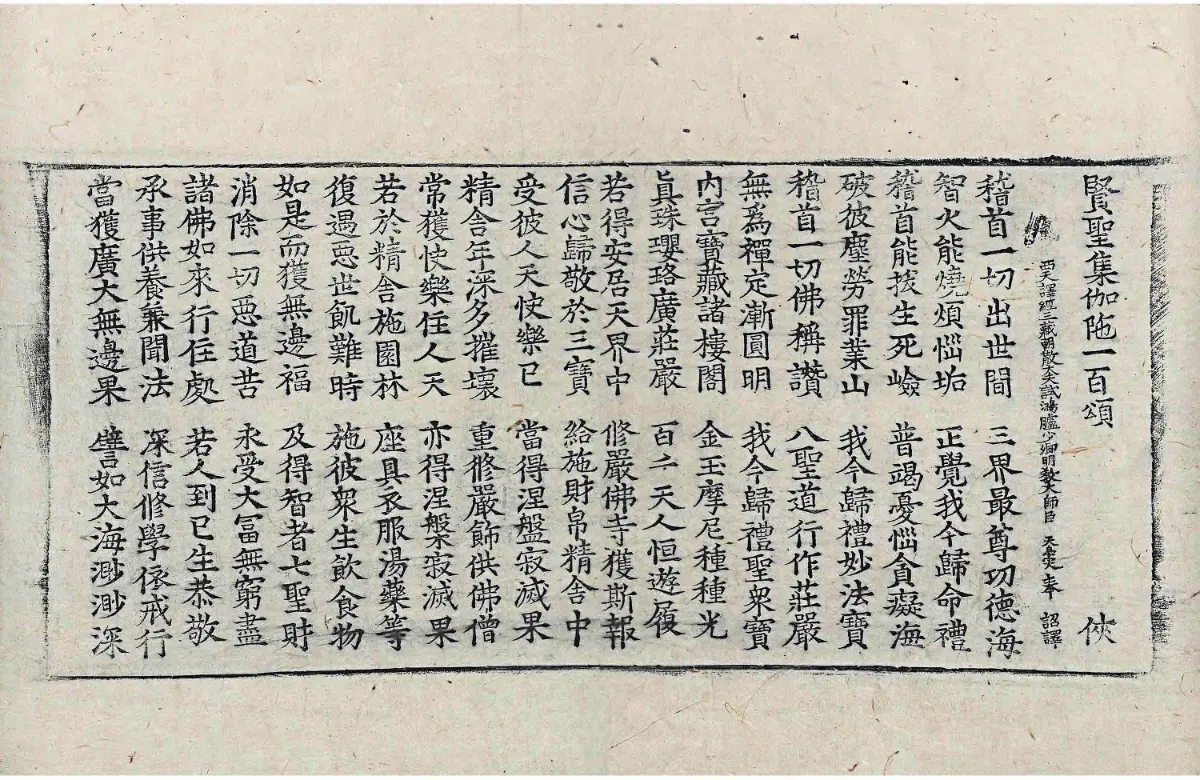 賢聖集伽陁一百頌 俠
西天譯經三藏朝散大夫試鴻臚少卿明教大師臣 天息災奉 詔譯
稽首一切出世間 三界最尊功德海
智火能燒煩惱垢 正覺我今歸命禮
稽首能拔生死嶮 普竭憂惱貪癡海
破彼塵勞罪業山 我今歸禮妙法寶
稽首一切佛稱讚 八聖道行作莊嚴
無爲禪定漸圓明 我今歸禮聖衆寶
内宫寶藏諸樓閣 金玉摩尼種種光
眞珠瓔珞廣莊嚴 百千天人恒遊履
若得安居天界中 修嚴佛寺獲斯報
信心歸敬於三寶 給施財帛精舍中
受彼人天快樂已 當得涅盤寂滅果
精舍年深多摧壞 重修嚴飾供佛僧
常獲快樂住人天 亦得涅槃寂滅果
若於精舍施園林 座具衣服湯藥等
復遇惡世飢難時 施彼衆生飲食物
如是而獲無邊福 及得智者七聖財
消除一切惡道苦 永受大富無窮盡
諸佛如來行住處 若人到已生恭敬
承事供養兼聞法 深信修學依戒行
當獲廣大無邊果 譬如大海渺渺深